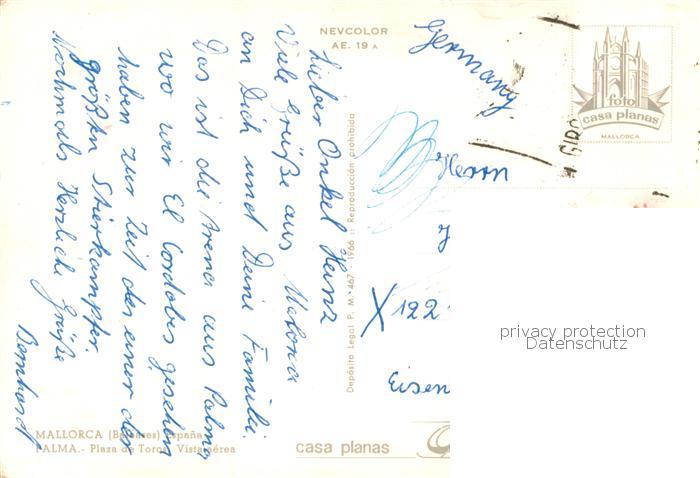 NEVCOLOR
AE. 19 A
Lieber Onkel Heinz
Viele Grüße aus Malorca
an Dich und Deine Familie.
Das ist die Arena aus Palma
wo wir El Cordobes gesehen
haben zur Zeit der einer der
größten Stierkämpfer.
Nochmals Herzliche Grüße
Bernhard
MALLORCA (Baleares) España
PALMA.- Plaza de Toros. Vista aérea
Depósito Legal P. M. 467 - 1966 :: Reproducción prohibida
casa planas
Germany
foto
casa planas
MALLORCA
GIRO
Herrn
X 122
Eisen
privacy protection
Datenschutz